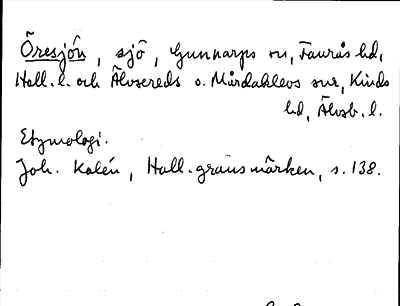 Öresjön, sjö, Gunnarps sn, Faurås hd,
Hall. l. och Älvsereds o. Mårdaklevs snr, Kinds
hd, Älvsb. l.
Etymologi.
Joh. Kalén, Hall. gränsmärken, s. 138.